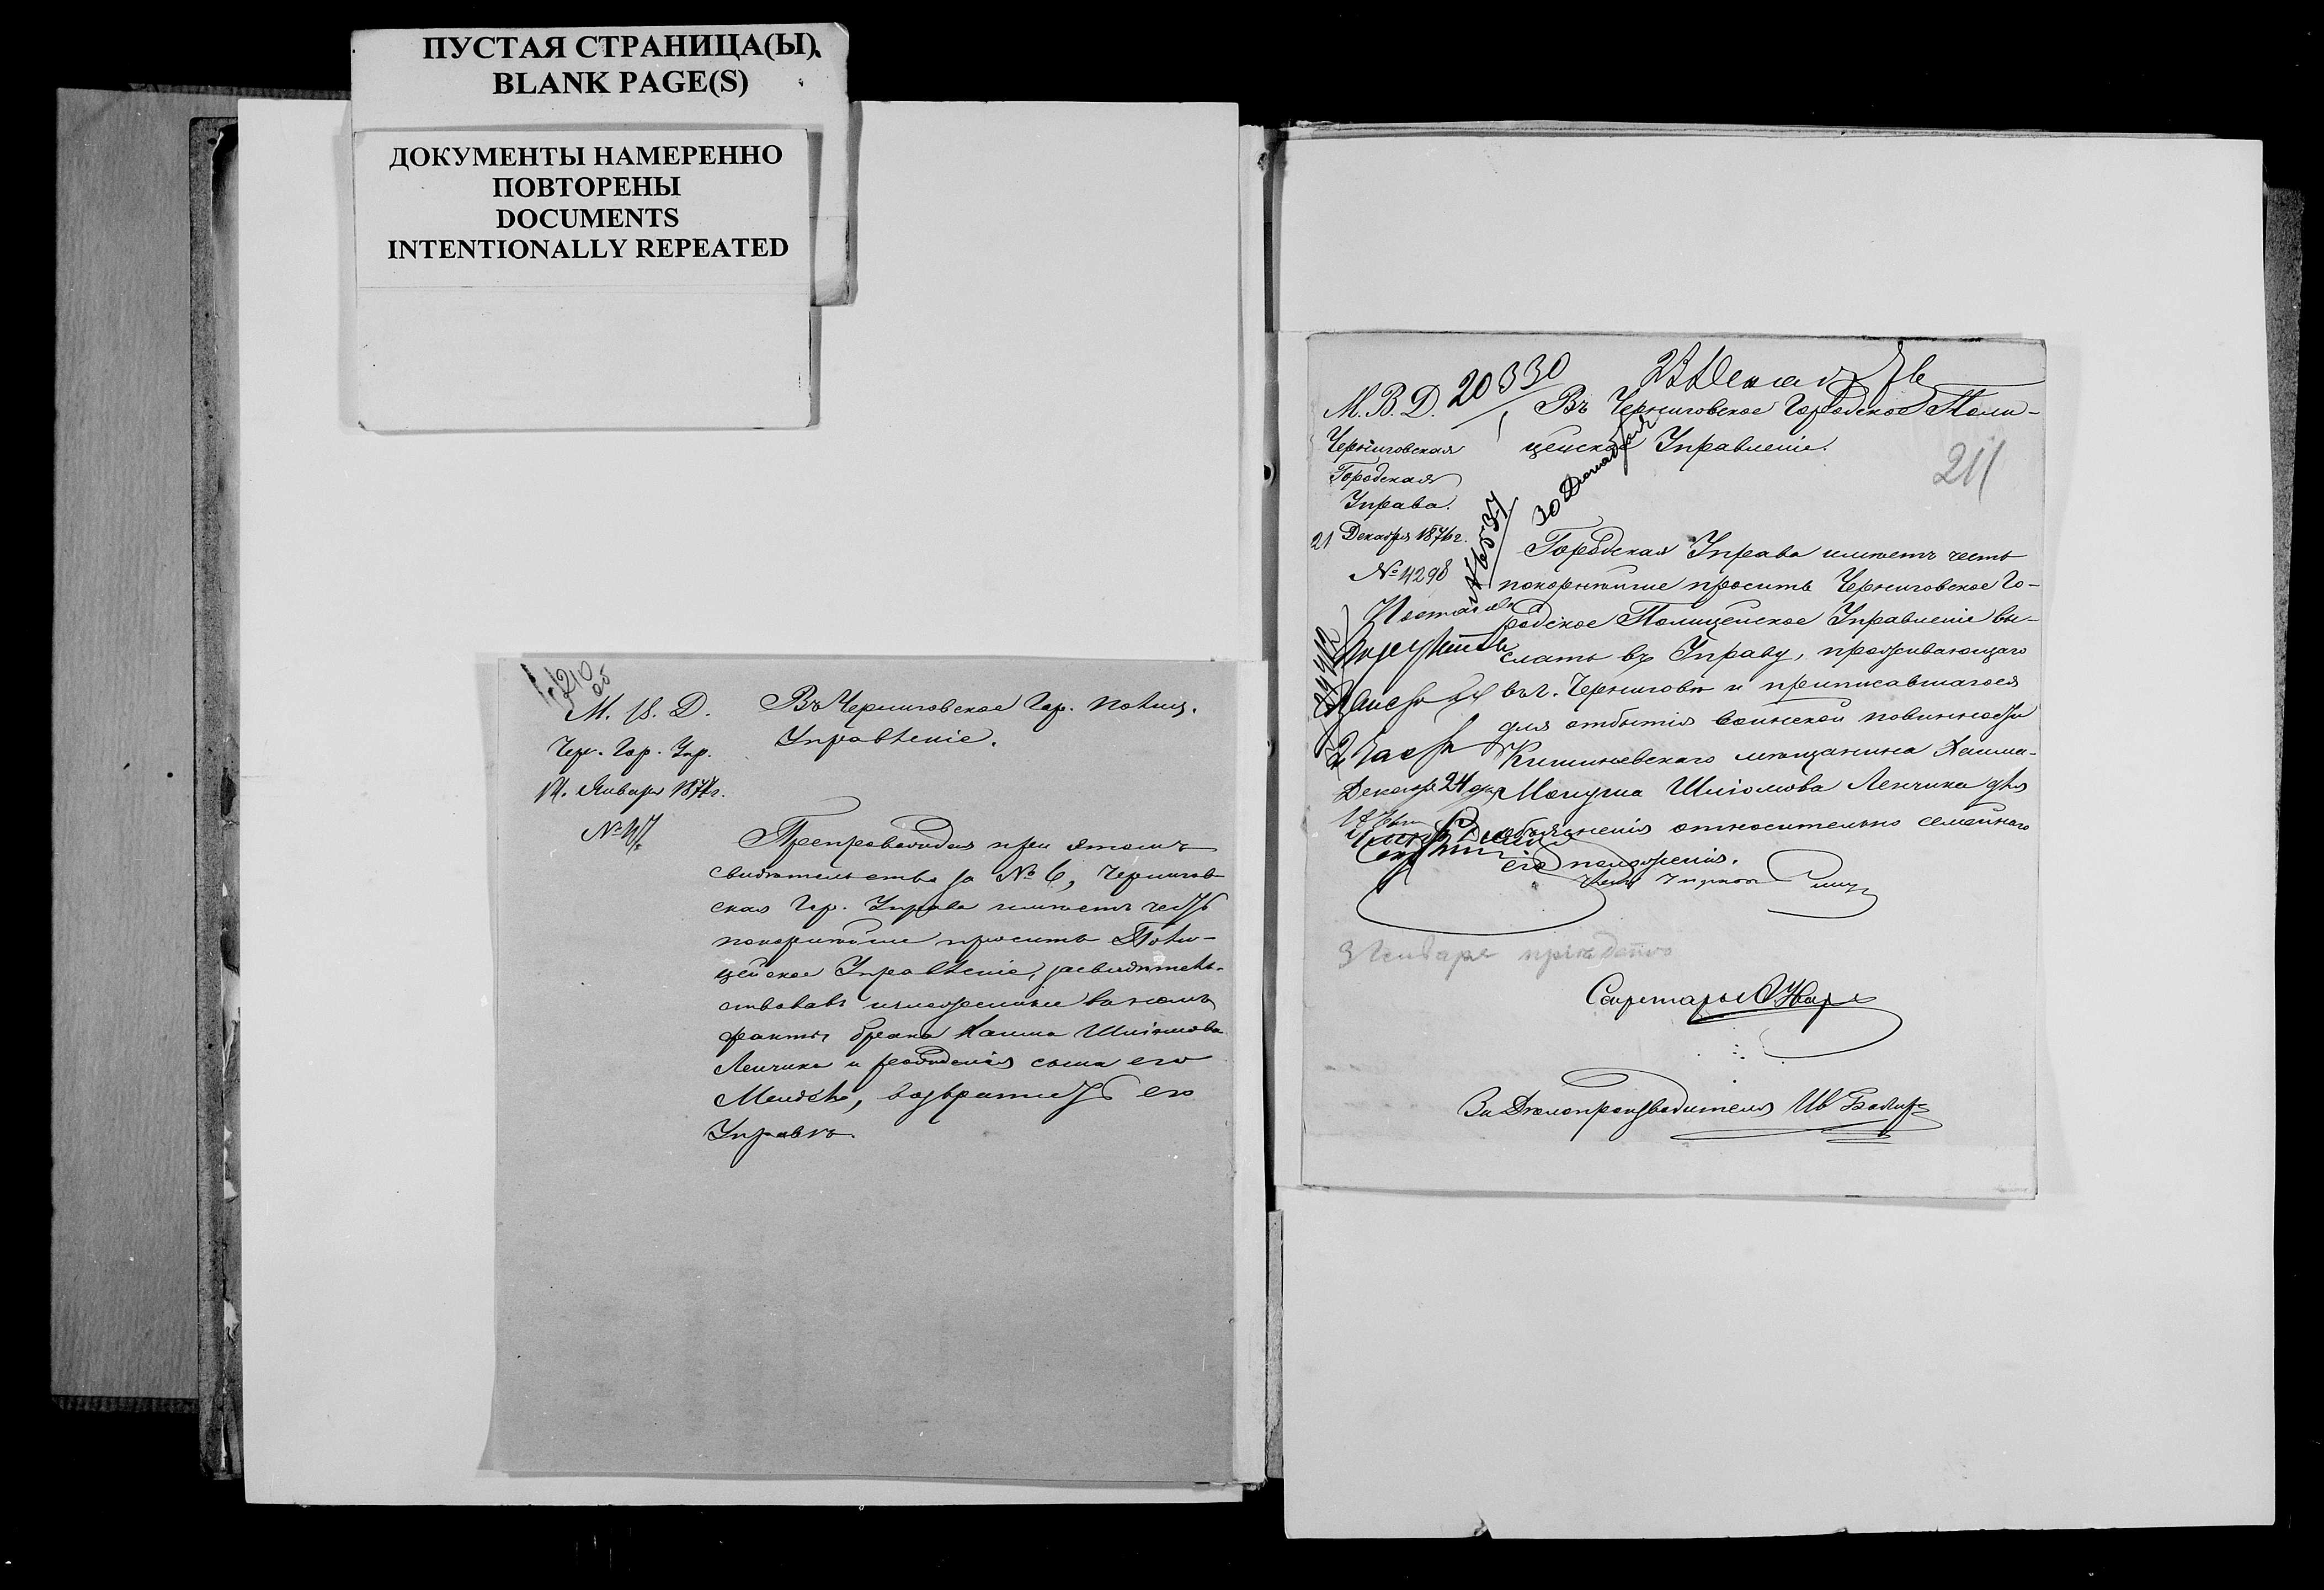 ПУСТАЯ СТРАНИЦА(Ы)
BLANK PAGE(S)
ДОКУМЕНТЫ НАМЕРЕННО
ПОВТОРЕНЫ
DOCUMENTS
INTENTIONALLY REPEATED
210
М. В. Д.
Чер. Гор. Упр.
14. Января 1877г.
Въ Черниговское Гор. Полиц.
Управленіе.
Препровождая при этомъ
свидѣтельство за № 6, Чернигов
ская Гор. Управа имѣетъ честь
покорнѣйше просить Поли-
цейское Управленіе, засвидѣтель-
ствовавъ изложенные въ немъ
факты брака Хаима Шліомова
Ленчика и рожденія сына его
Мендель, возвратить его
Управѣ.
М. В. Д. 20330
Черниговская
Городская
Управа.
21 Декабря 1876г.
№ 4298
Въ Черниговское Городское Поли-
цейское Управленіе.
211
30 Декабря
№ 6537
Городская Управа имѣетъ честь
покорнѣйше просить Черниговское Го-
родское Полицейское Управленіе вы-
слать въ Управу, проживающаго
въ г. Черниговѣ и приписавшагося
для отбытія воинской повинности
Кишиневскаго мѣщанина Хаима-
Шліомова Ленчика для
объясненія относительно семейнаго
его положенія.
Декабря 24 дня
Членъ Управы
Секретарь
За Дѣлопроизводителя